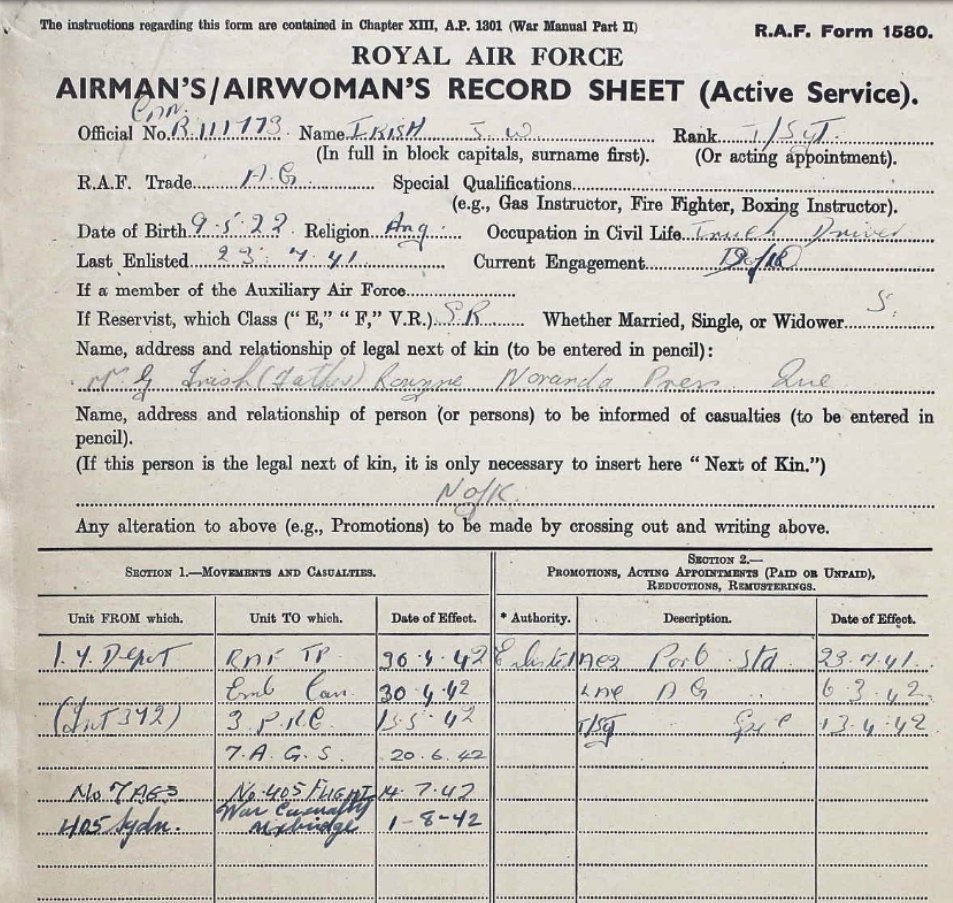 The instructions regarding this form are contained in Chapter XIII, A.P. 1301 (War Manual Part II)
R.A.F. Form 1580.
ROYAL AIR FORCE
AIRMAN'S/AIRWOMAN'S RECORD SHEET (Active Service).
Can.
Official No. R.111773 Name IRISH J. W. Rank T/SGT.
(In full in block capitals, surname first). (Or acting appointment).
R.A.F. Trade A.G. Special Qualifications
(e.g., Gas Instructor, Fire Fighter, Boxing Instructor).
Date of Birth 9.5.22 Religion Ang. Occupation in Civil Life Truck Driver
Last Enlisted 23.7.41 Current Engagement
If a member of the Auxiliary Air Force
If Reservist, which Class ("E," "F," V.R.) S.R Whether Married, Single, or Widower S.
Name, address and relationship of legal next of kin (to be entered in pencil):
Mr G Irish (Father) Noranda Que
Name, address and relationship of person (or persons) to be informed of casualties (to be entered in
pencil).
(If this person is the legal next of kin, it is only necessary to insert here "Next of Kin.")
N of K.
Any alteration to above (e.g., Promotions) to be made by crossing out and writing above.
SECTION 1.—MOVEMENTS AND CASUALTIES.
SECTION 2.—
PROMOTIONS, ACTING APPOINTMENTS (PAID OR UNPAID),
REDUCTIONS, REMUSTERINGS.
Unit FROM which. Unit TO which. Date of Effect. * Authority. Description. Date of Effect.
1. Y. Depot RAF TP. 30.4.42 Enlisted AC2 Std 23.7.41.
Emb Can. 30.4.42 LAC A G 6.3.42.
(Int 372) 3 P.R.C. 13.5.42 T/Sgt 13.4.42
7.A.G.S. 20.6.42
No 7 AGS No. 405 FLIGHT 14.7.42
405 Sqdn. War Casualty Uxbridge 1-8-42